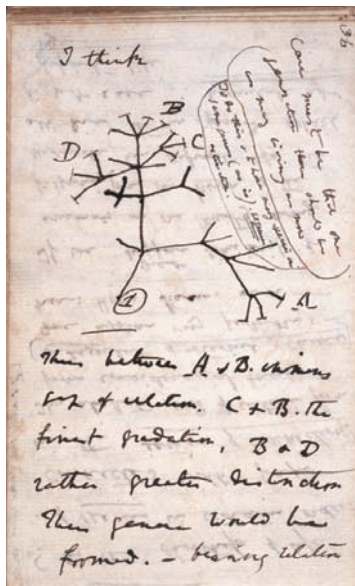 36
I think
Case must be that one
generation then should be
as many living as now
To do this & to have many species in
same genus (as is) requires
extinction.
B
C
D
A
1
Thus between A & B. immense
gap of relation. C & B. the
finest gradation, B & D
rather greater distinction
Thus genera would be
formed. — bearing relation